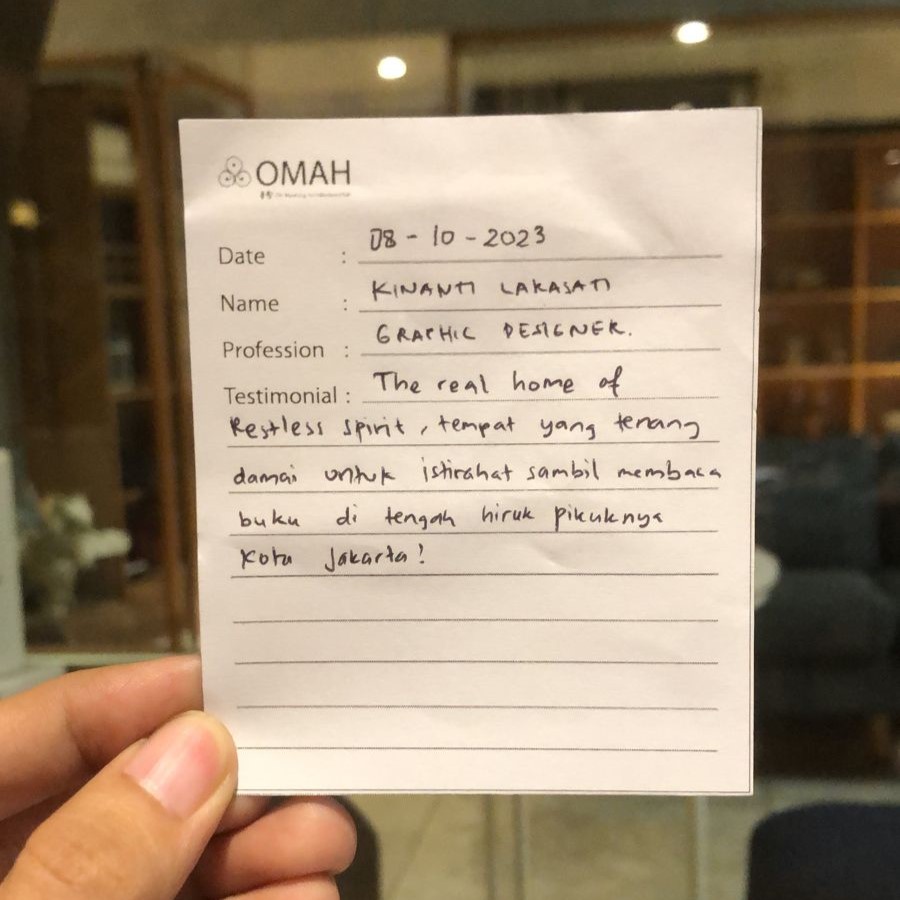 OMAH
Date : 08 - 10 - 2023
Name : KINANTI LAKASATI
Profession : GRAPHIC DESIGNER.
Testimonial : The real home of
Restless spirit, tempat yang tenang
damai untuk istirahat sambil membaca
buku di tengah hiruk pikuknya
Kota Jakarta!